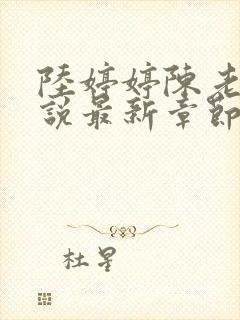 陸婷婷陳老
說最新章節
杜星